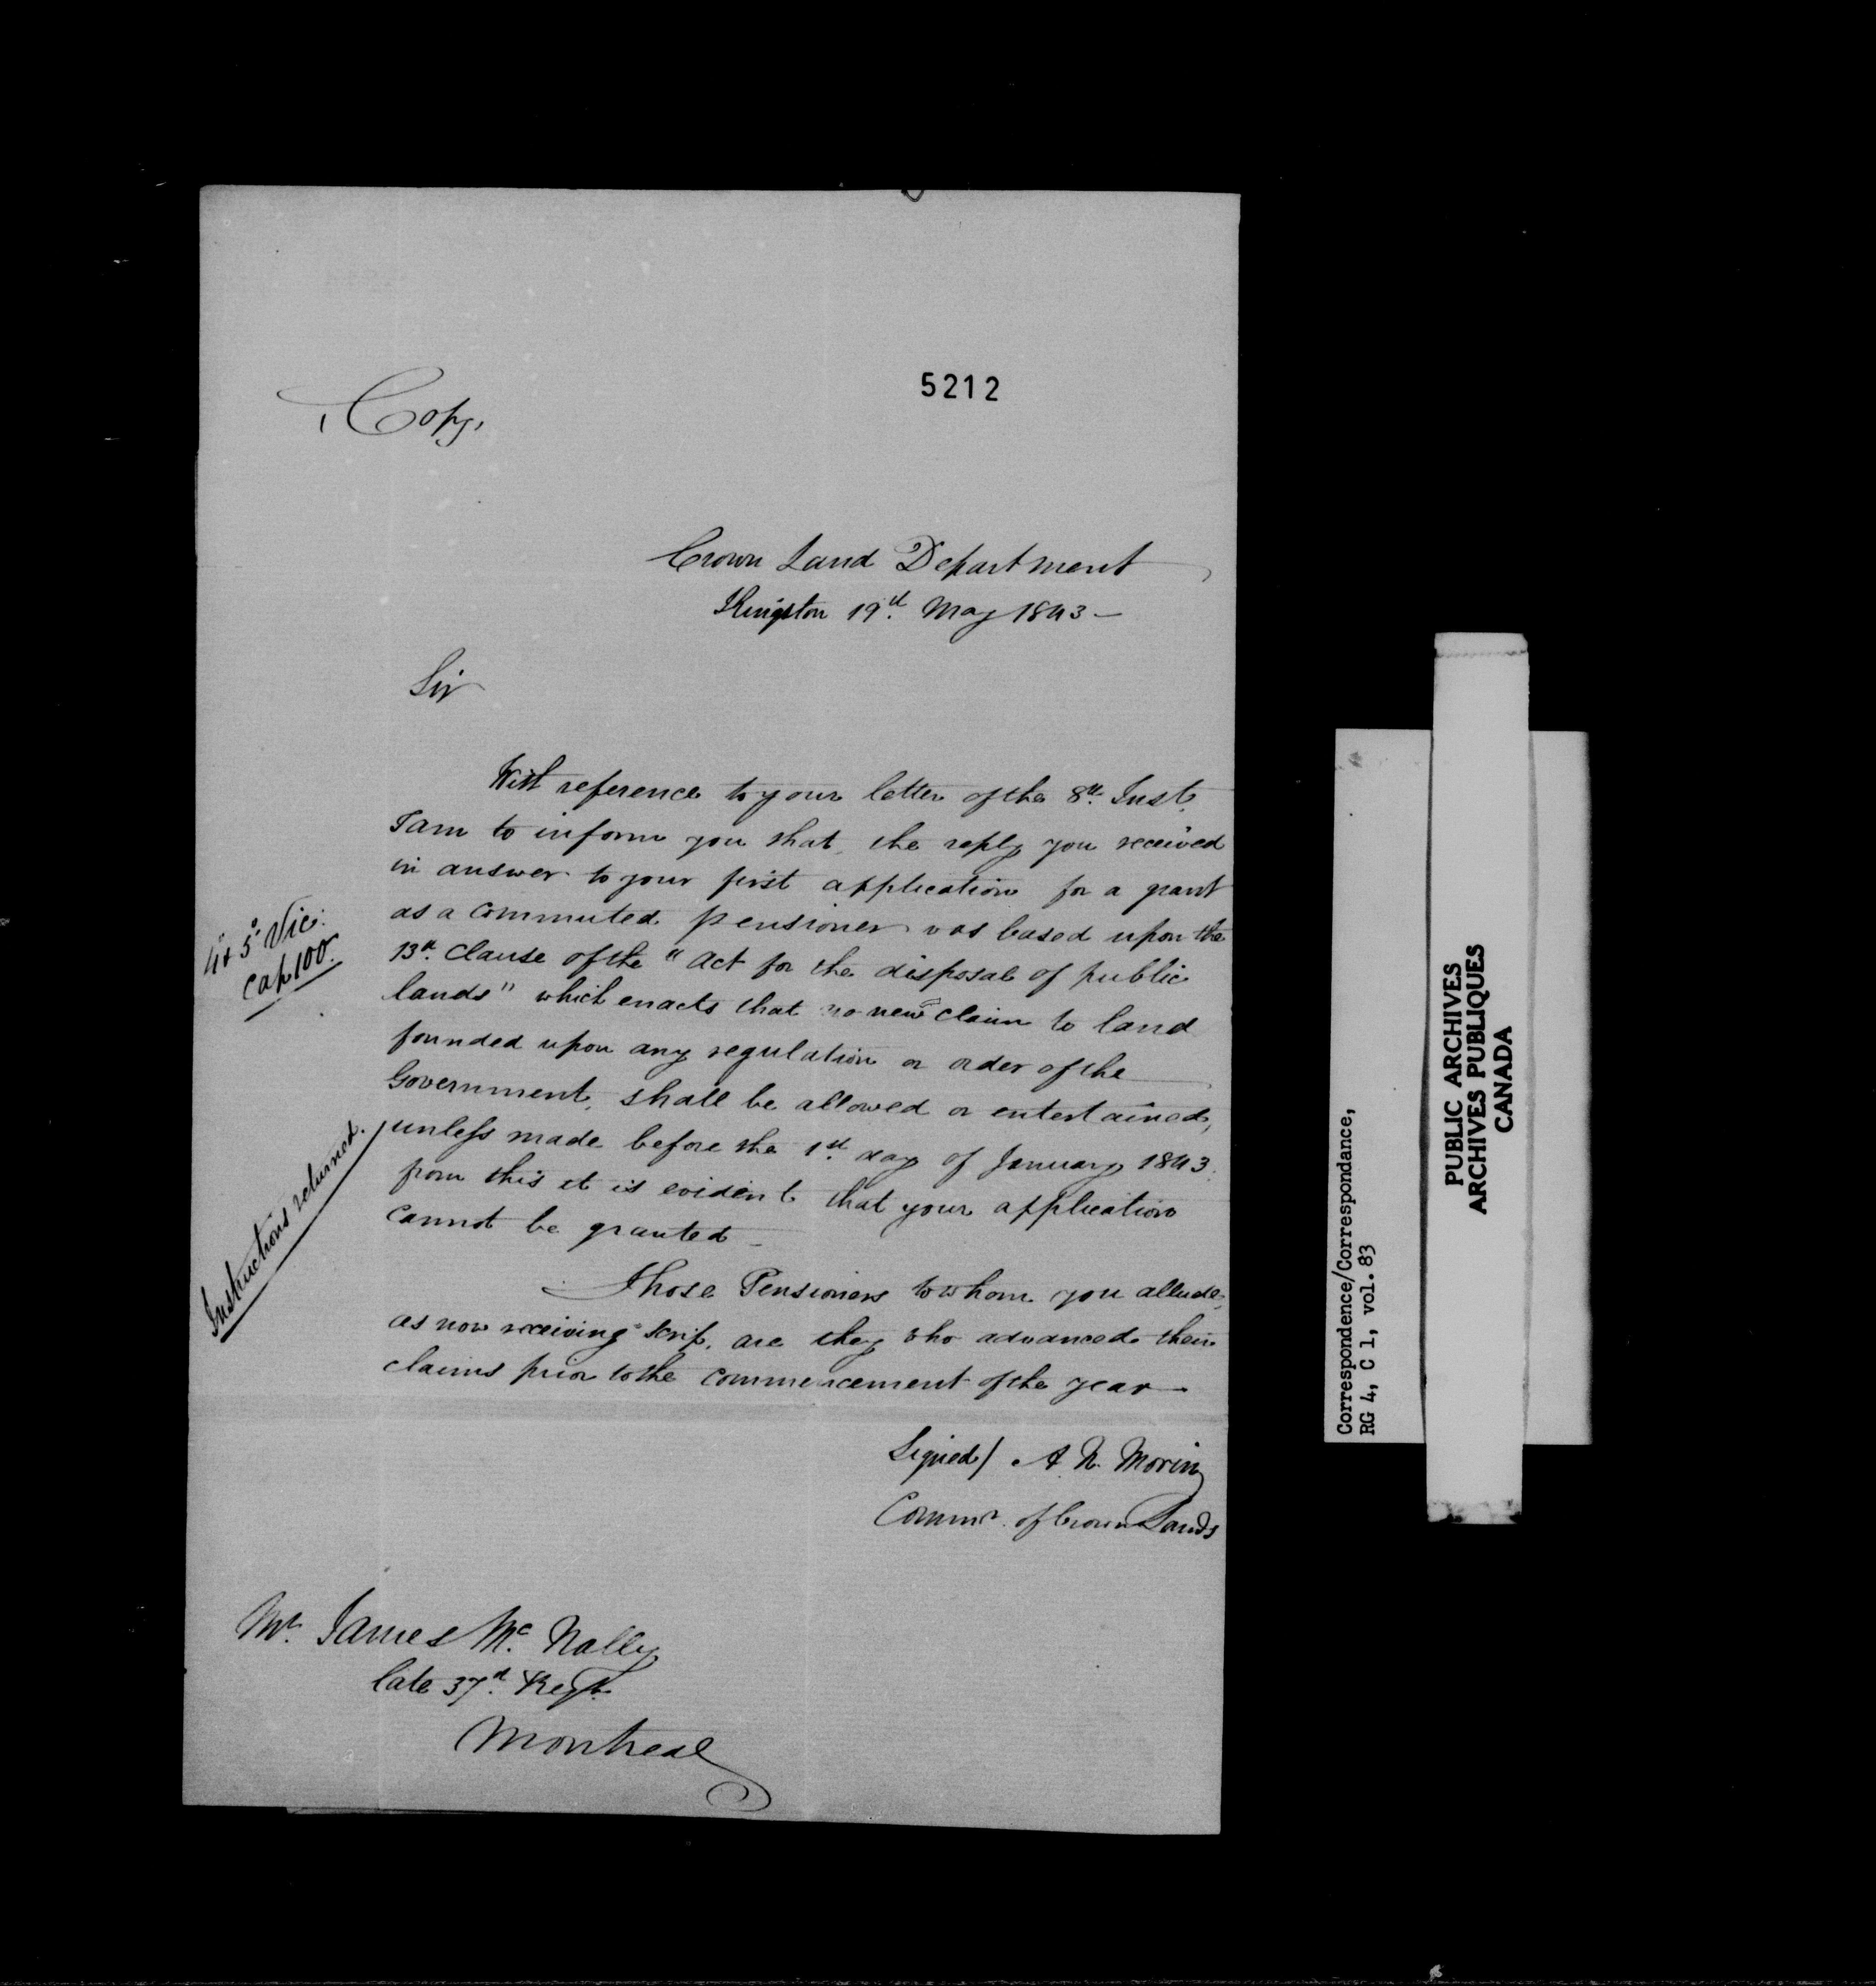 5212
Copy,
Crown Land Department
Kingston 19th May 1843 —
Sir
With reference to your letter of the 8th Inst.
I am to inform you that, the reply you received
in answer to your first application for a grant
as a commuted pensioner was based upon the
13th Clause of the "Act for the disposal of public
lands" which enacts that no new claim to land
founded upon any regulation or order of the
Government, shall be allowed or entertained,
unless made before the 1st day of January 1843.
from this it is evident that your application
cannot be granted —
Those Pensioners to whom you allude,
as now receiving Scrip, are they who advanced their
claims prior to the commencement of the year —
Signed/ A. N. Morin
Commr. of Crown Lands
Mr. James Mc Nally
late 37th Regt.
Montreal
4 & 5 Vic:
Cap 100.
Instructions returned.
Correspondence/Correspondance,
RG 4, C 1, vol. 83
PUBLIC ARCHIVES
ARCHIVES PUBLIQUES
CANADA